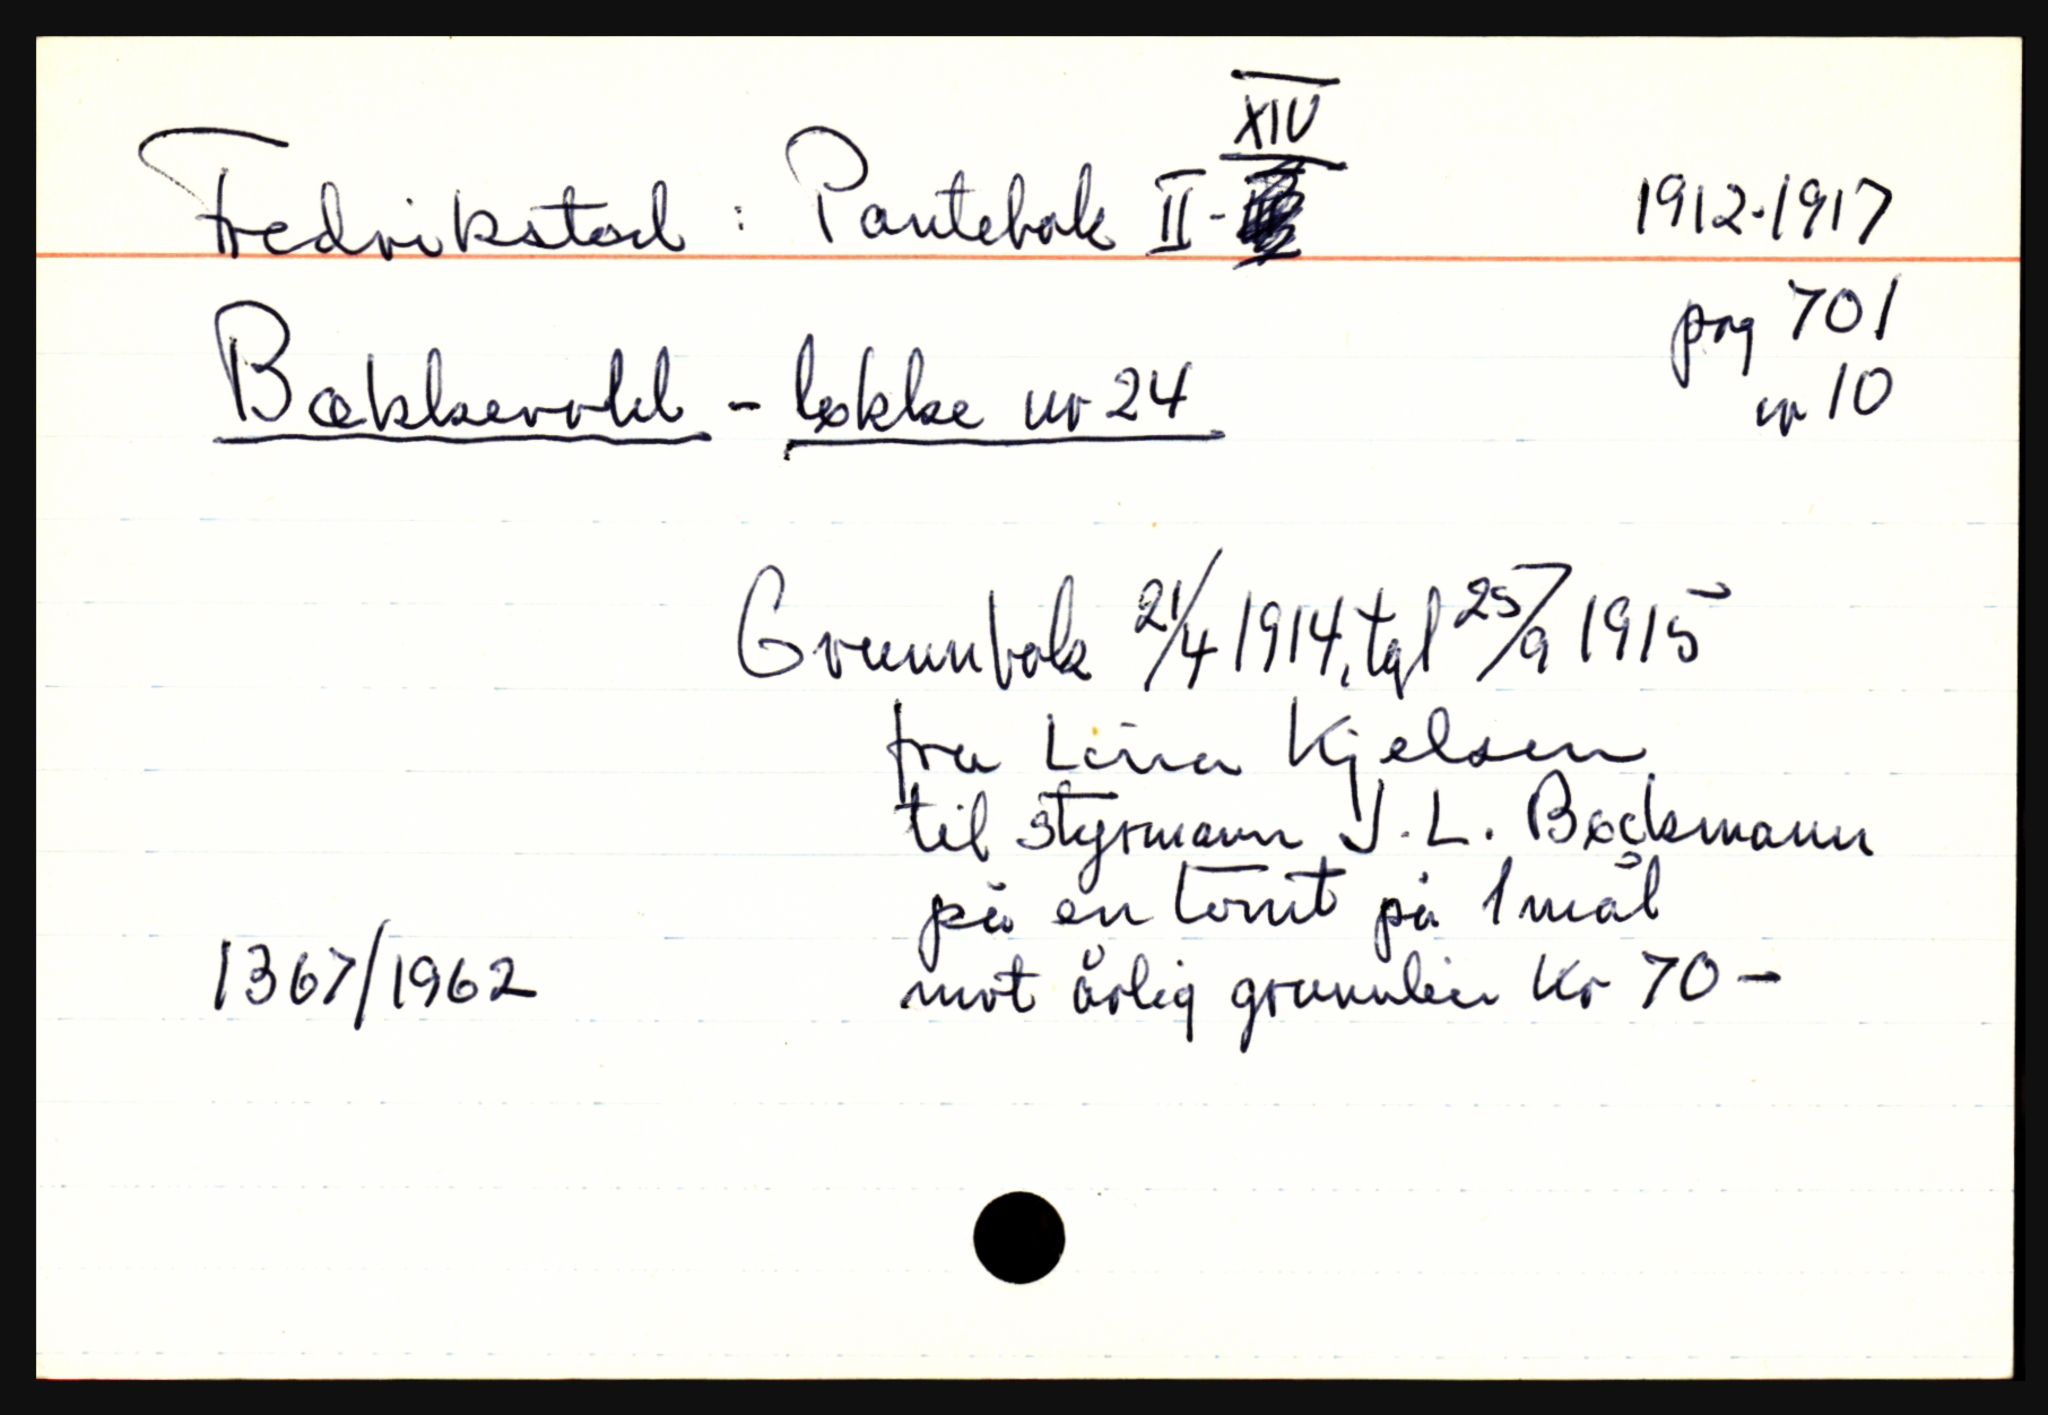 Fredrikstad : Pantebok II - XIV 1912-1917
pag 701
Bækkevold - løkke nr 24
nr 10
Grunnbok 21/4 1914, tgl 25/9 1915
fra Lina Kjelsen
til styrmann J. L. Bøckmann
på en tomt på 1 mål
1367/1962 mot årlig grunnleie Kr 70 -